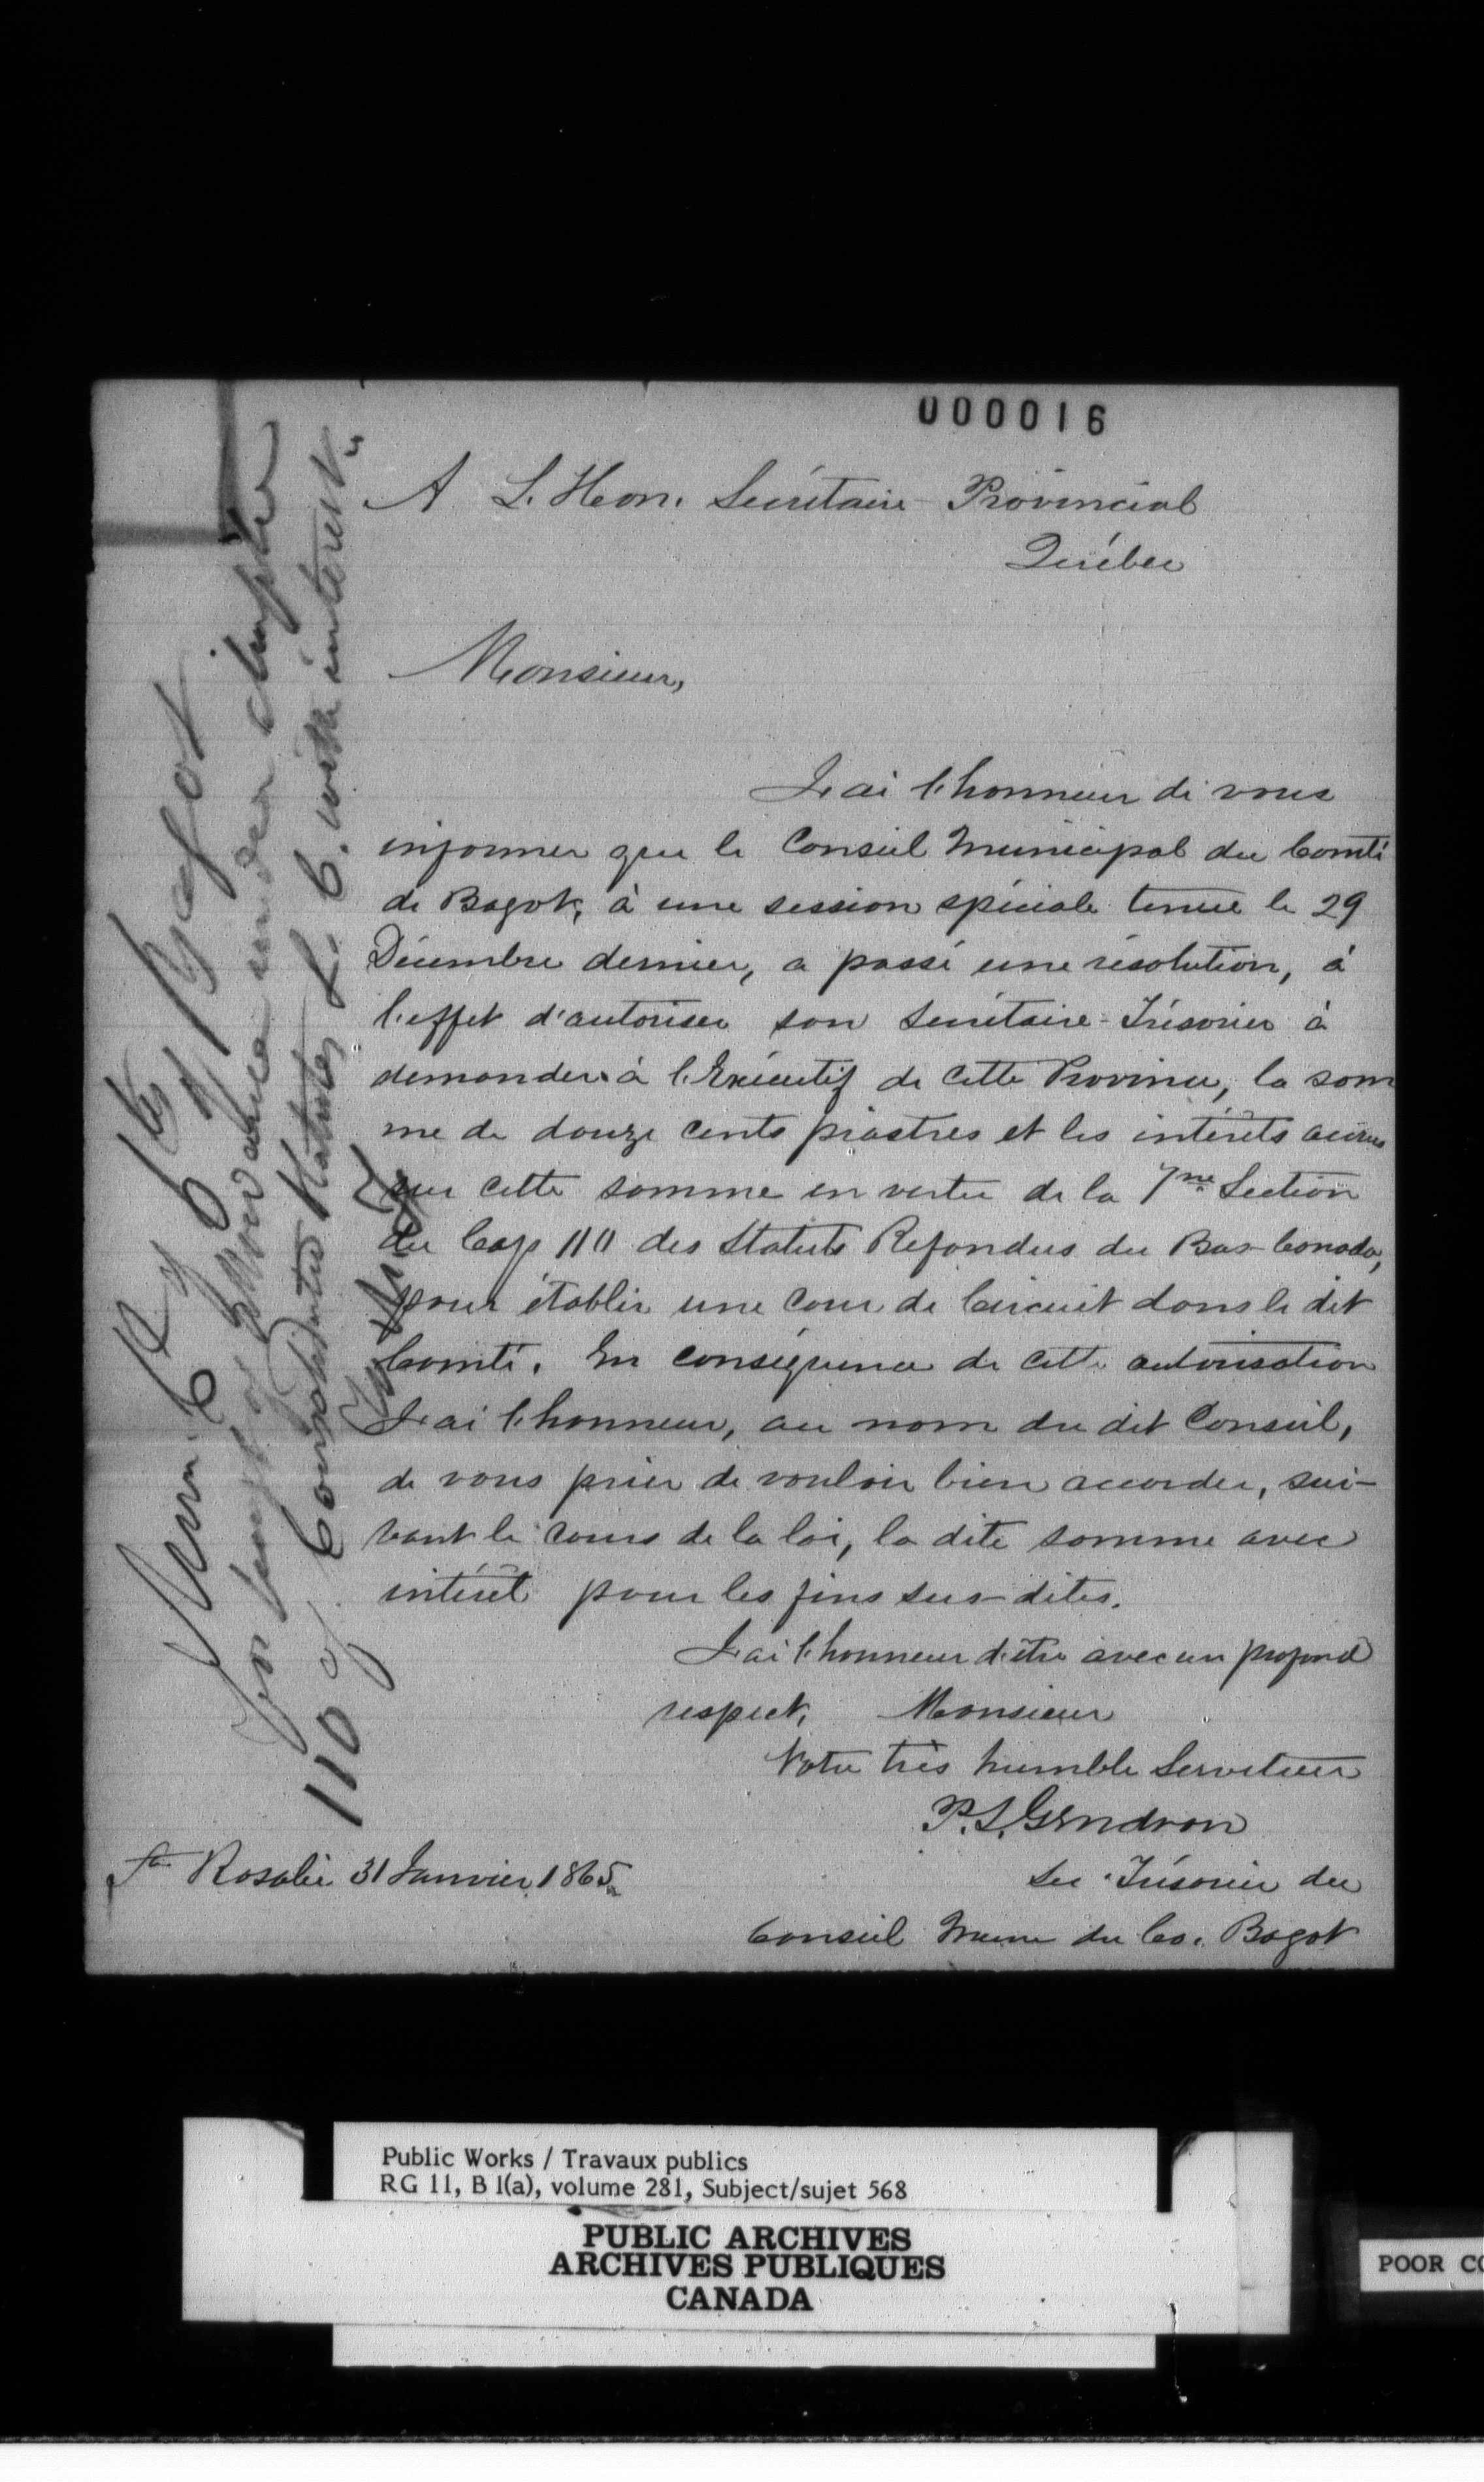 000016
A L'Hon. Secrétaire Provincial
Québec
Monsieur,
J'ai l'honneur de vous
informer que le Conseil Municipal du Comté
de Bagot, à une session spéciale tenue le 29
Décembre dernier, a passé une résolution, à
l'effet d'autoriser son Secrétaire-Trésorier à
demander à l'Exécutif de cette Province, la som
me de douze cents piastres et les intérêts accrus
sur cette somme en vertu de la 7me Section
du Cap 110 des Statuts Refondus du Bas-Canada,
pour établir une Cour de Circuit dans le dit
Comté. En conséquence de cette autorisation
J'ai l'honneur, au nom du dit Conseil,
de vous prier de vouloir bien accorder, sui-
vant le cours de la loi, la dite somme avec
intérêt pour les fins sus-dites.
J'ai l'honneur d'être avec un profond
respect, Monsieur
Votre très humble Serviteur
P.S. Gendron
Sec Trésorier du
Conseil Mun du Co. Bagot
Ste Rosalie 31 Janvier 1865
of Bagot
for allowance under chapter
110 of Consolidated Statutes L. C. with interest
Public Works / Travaux publics
RG 11, B 1(a), volume 281, Subject/sujet 568
PUBLIC ARCHIVES
ARCHIVES PUBLIQUES
CANADA
POOR CO